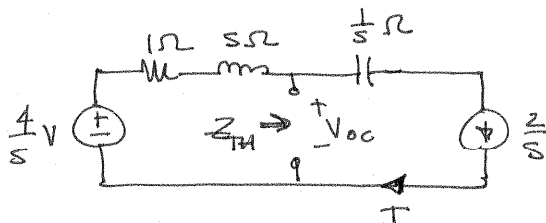 1Ω sΩ 1/s Ω
4/s V + - Z_TH → + - V_OC 2/s
I